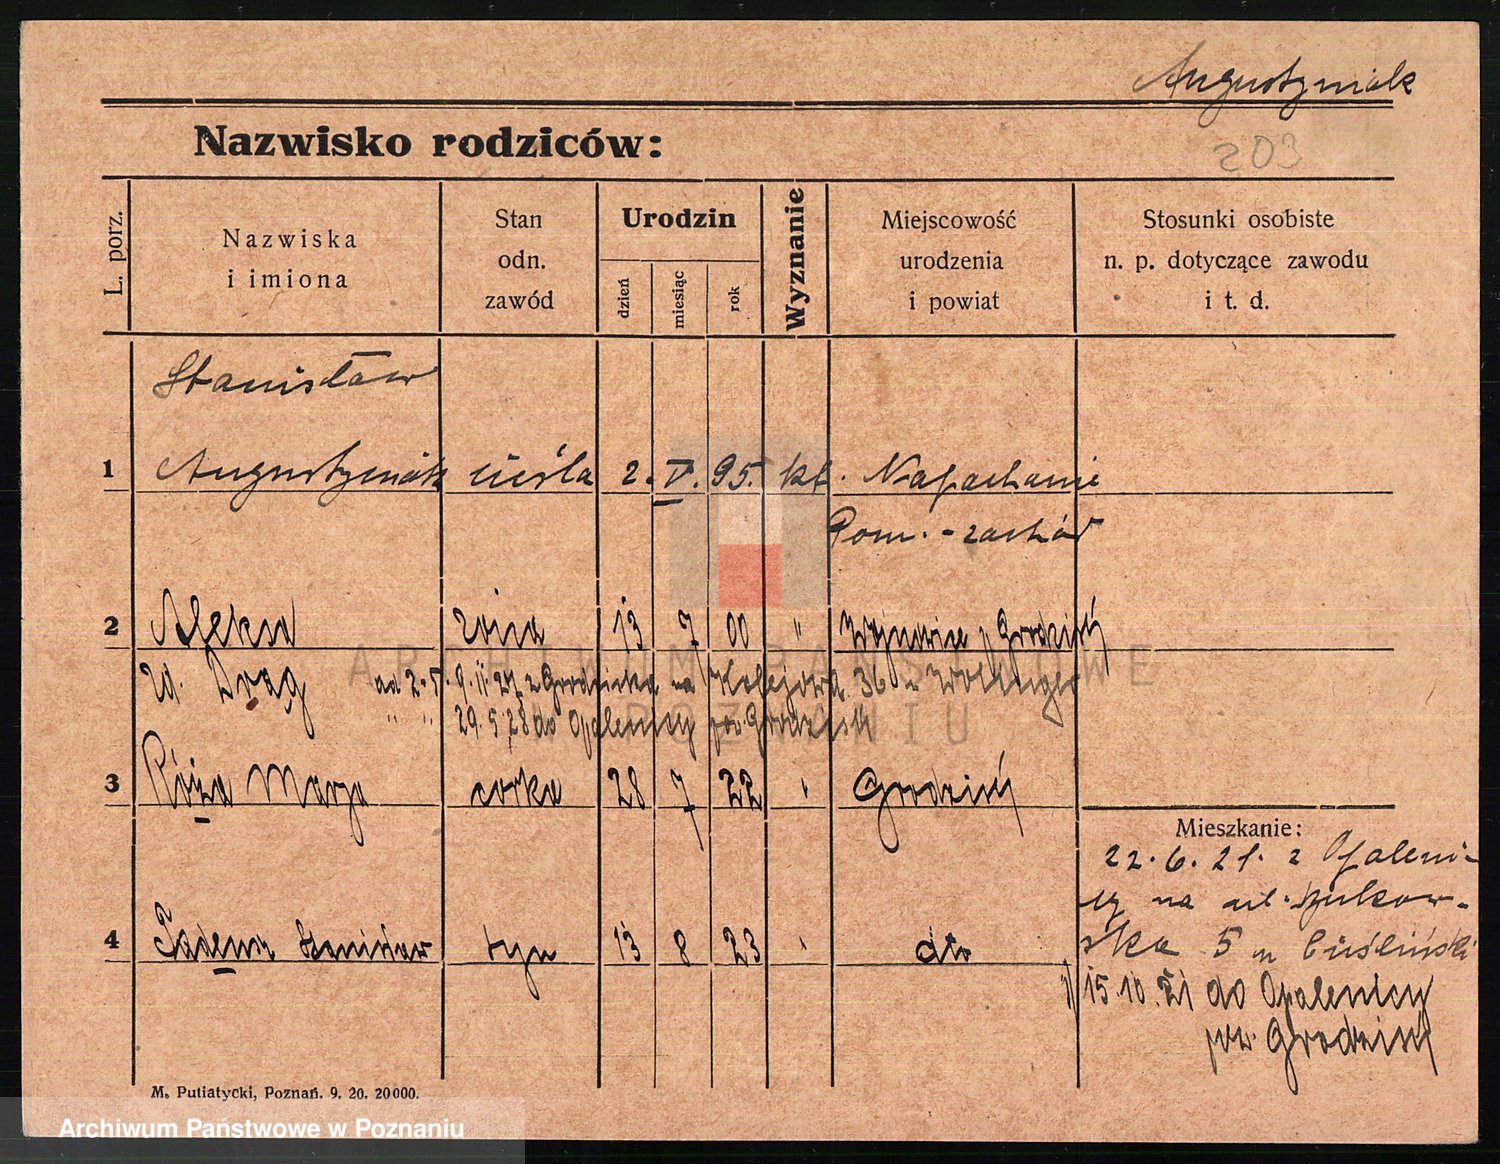 Augustyniak
203
Nazwisko rodziców:
L. porz.
Nazwiska
i imiona
Stan
odn.
zawód
Urodzin
dzień
miesiąc
rok
Wyznanie
Miejscowość
urodzenia
i powiat
Stosunki osobiste
n. p. dotyczące zawodu
i t. d.
Stanisław
1 Augustyniak cieśla 2. V. 95. kt. Napachanie
Pozn. - zachód
2 żona 13 7 00 " Grodzisk
zd. Drąg od 2-5. 9.11.27 z Grodziska na Kolejową 36 u
" " 29.5.28 do Opalenicy pow. Grodzisk
3 Róża Marja córka 28 7 22 " Grodzisk
Mieszkanie:
22.6.21. z Opaleni-
cy na ul.
4 Stanisław syn 13 8 23 " dto
ska 5 u Cieśliński
15.10.21 do Opalenicy
pow. Grodzisk
M. Putiatycki, Poznań. 9. 20. 20000.
ARCHIWUM PAŃSTWOWE
W POZNANIU
Archiwum Państwowe w Poznaniu